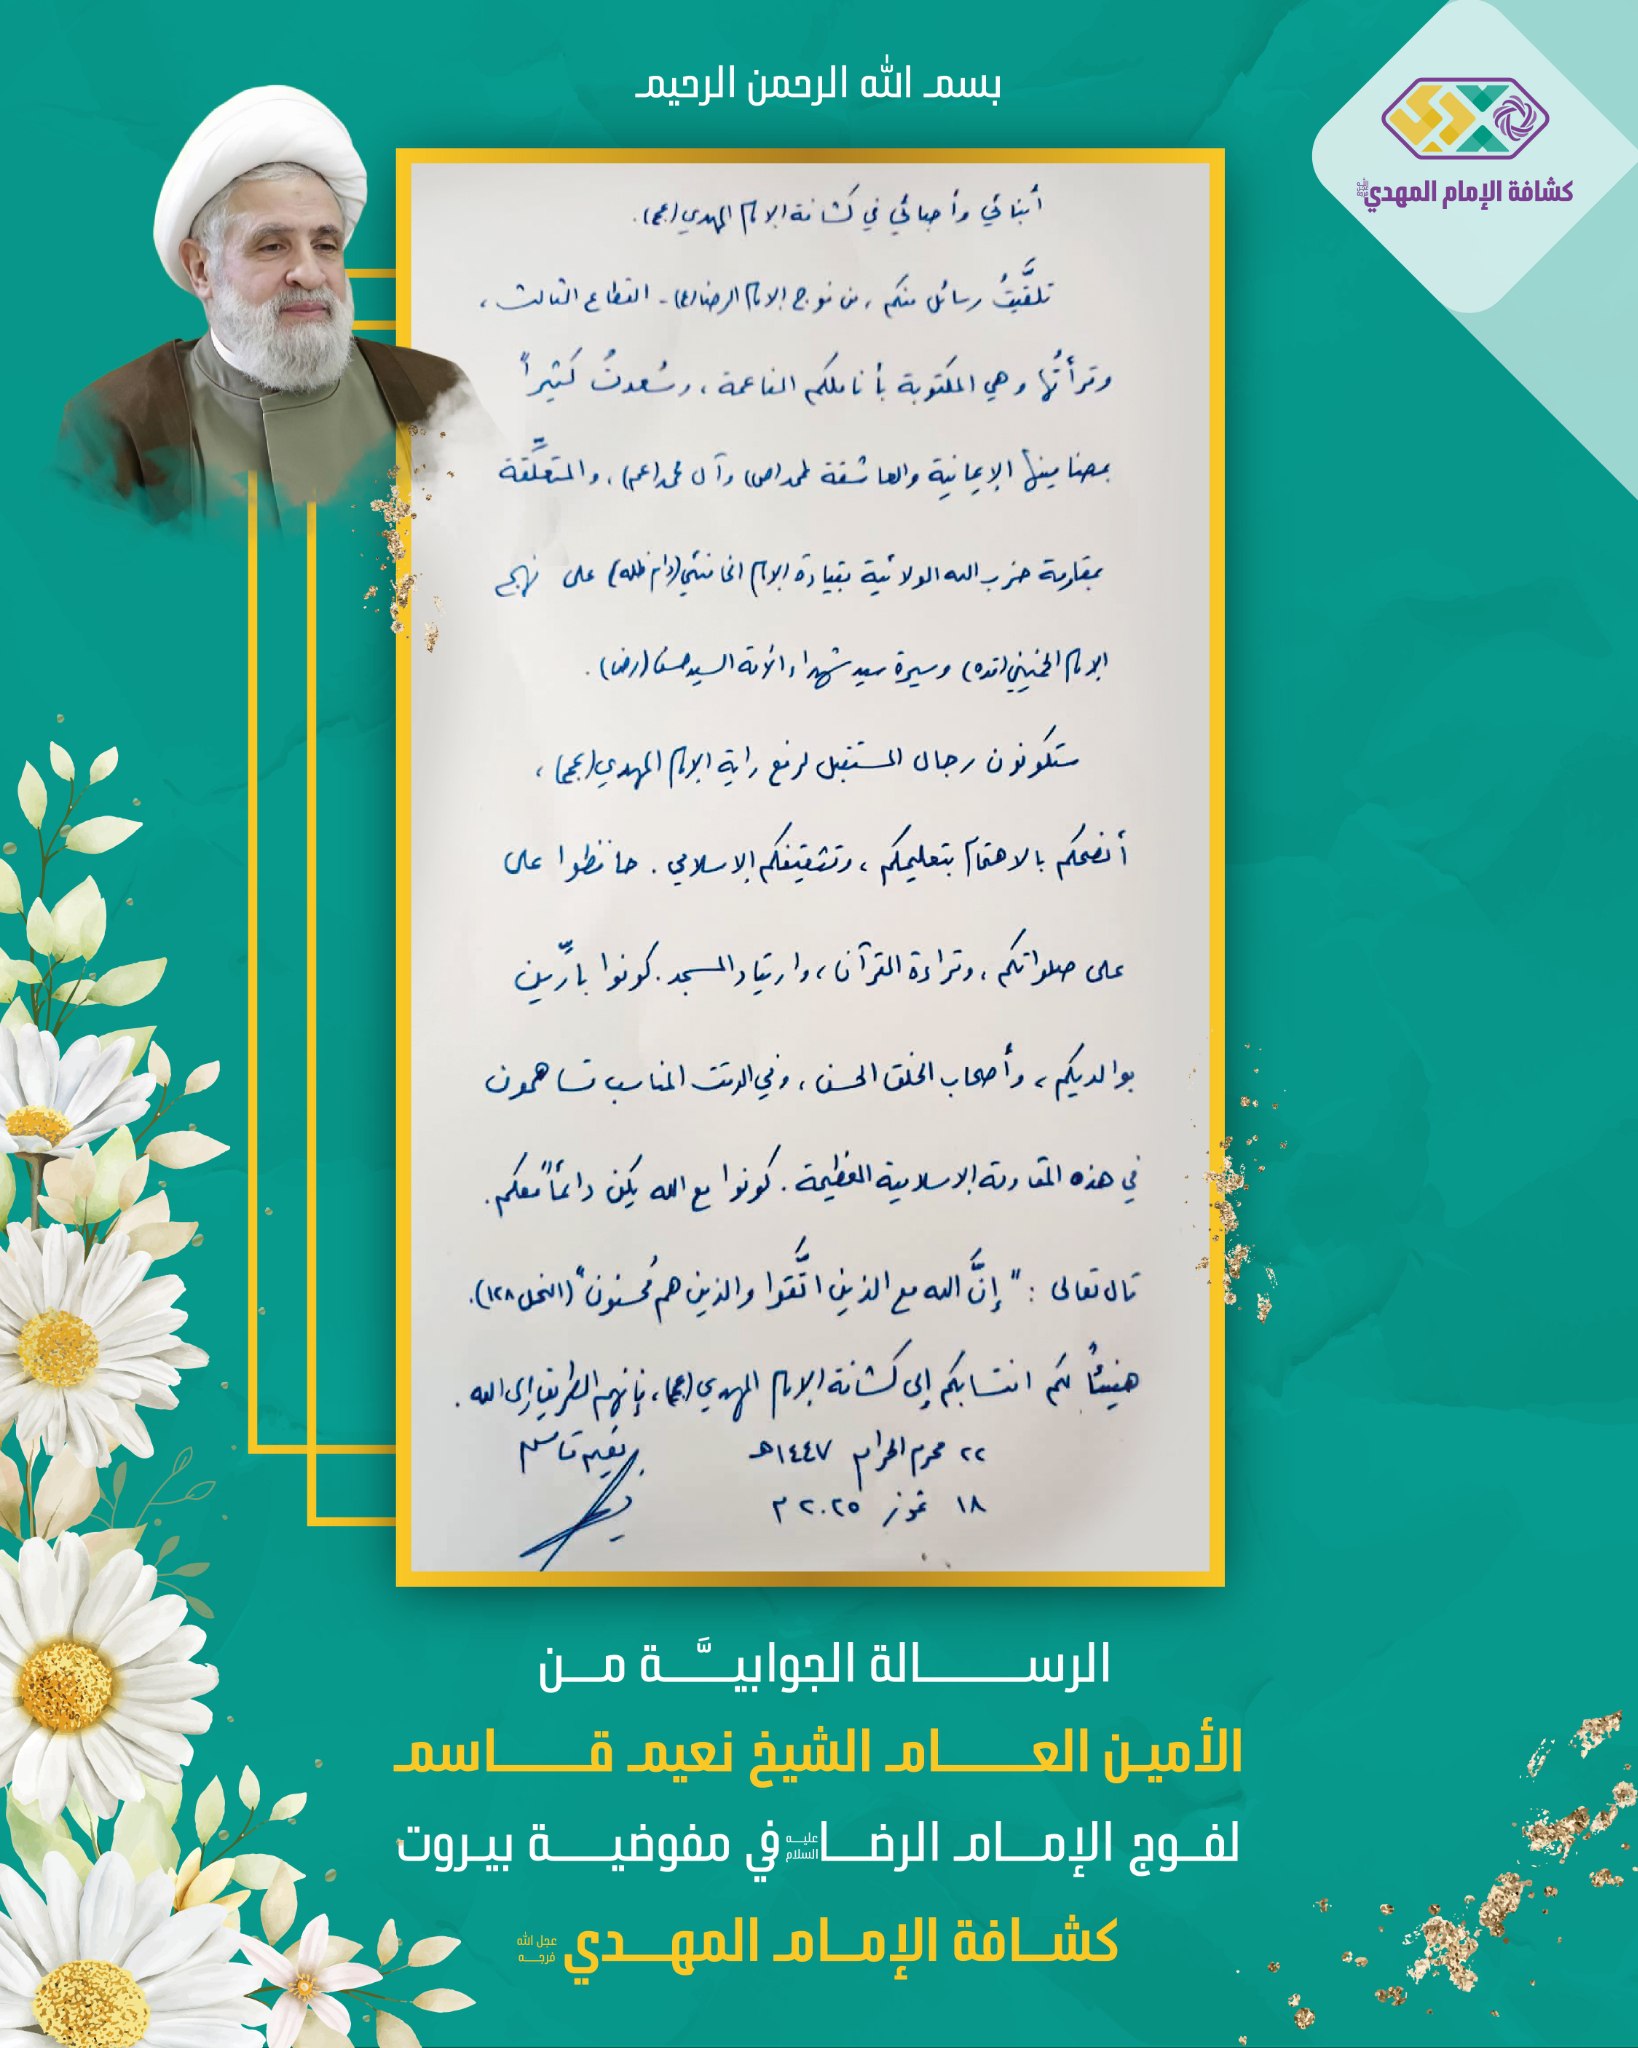 بسم الله الرحمن الرحيم
كشافة الإمام المهدي
أبنائي وأحبائي في كشافة الإمام المهدي (عج).
تلقَّيتُ رسائل منكم، من فوج الإمام الرضا (ع) - القطاع الثالث،
وقرأتُها وهي المكتوبة بأناملكم الناعمة، وسُعدتُ كثيراً
بمضامينها الإيمانية والعاشقة لمحمد (ص) وآل محمد (عم)، والمتعلِّقة
بمقاومة حزب الله الولائية بقيادة الإمام الخامنئي (دام ظله) على نهج
الإمام الخميني (قده) وسيرة سيد شهداء الأمة السيد حسن (رض).
ستكونون رجال المستقبل لرفع راية الإمام المهدي (عج)،
أنصحكم بالاهتمام بتعليمكم، وتثقيفكم الإسلامي. حافظوا على
على صلواتكم، وقراءة القرآن، وارتياد المسجد. كونوا بارِّين
بوالديكم، وأصحاب الخلق الحسن، وفي الوقت المناسب تساهمون
في هذه المقاومة الإسلامية العظيمة. كونوا مع الله يكن دائماً معكم.
قال تعالى: "إنَّ الله مع الذين اتَّقوا والذين هم مُحسنون" (النحل ١٢٨).
هنيئاً لكم انتسابكم إلى كشافة الإمام المهدي (عج)، فإنهم الطريق إلى الله.
٢٢ محرم الحرام ١٤٤٧هـ نعيم قاسم
١٨ تموز ٢٠٢٥ م
الرسالة الجوابيَّة من
الأمين العام الشيخ نعيم قاسم
لفوج الإمام الرضا عليه السلام في مفوضية بيروت
كشافة الإمام المهدي عجل الله فرجه